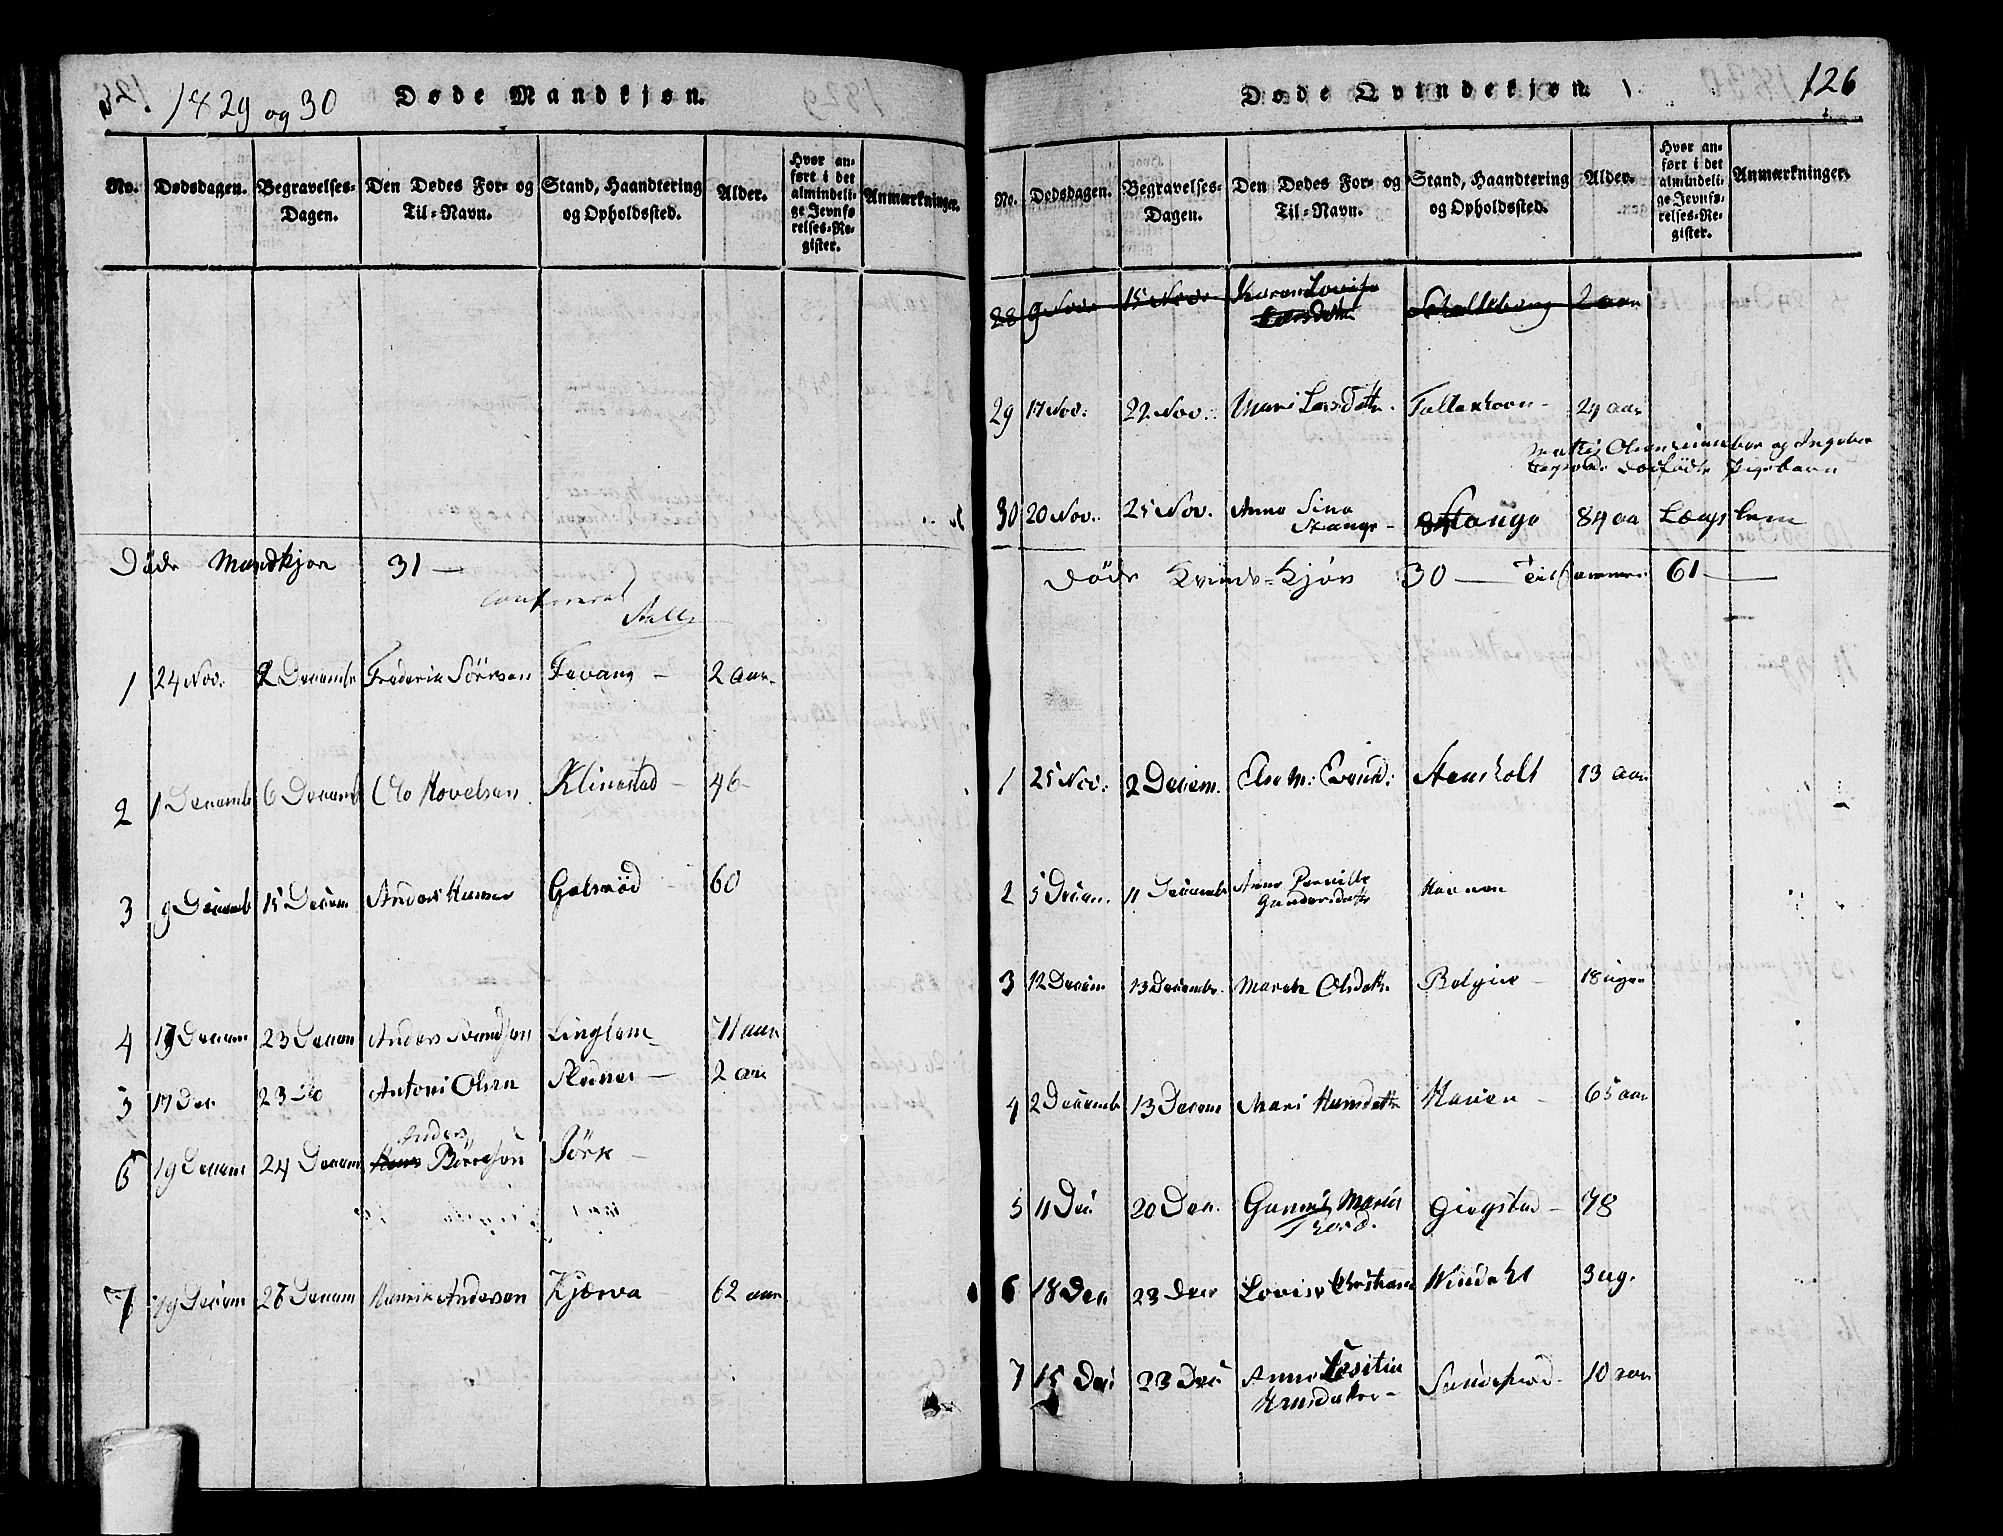 1829 og 30
Døde Mandkjøn.
No. Dødsdagen. Begravelses-Dagen. Den Dødes For- og Til-Navn. Stand, Haandtering og Opholdssted. Alder. Hvor anført i det almindelige Jevnførelses-Register. Anmærkninger.
Døde Mandkjøn 31 —
1 24 Nov. 2 Decembr Frederik Sörensen Fevang — 2 aar
2 1 Decemb 6 Decemb Ole Hovelsen Klinestad — 46
3 9 Decemb 15 Decem Anders Hansen Gogsröd 60
4 19 Decem 23 Decem Anders Svendsen Lingelem 71 aar
5 17 Dec 23 do Antoni Olsen — 2 aar
6 19 Decem 24 Decem Anders Börresön Jörk —
7 19 Decem 26 Decem Henrik Andersen Kjærva 62 aar
Døde Qvindekjøn.
126
No. Dødsdagen. Begravelses-Dagen. Den Dødes For- og Til-Navn. Stand, Haandtering og Opholdssted. Alder. Hvor anført i det almindelige Jevnførelses-Register. Anmærkninger.
28 9 Nov. 15 Nov. Karen Lovise Larsdatter 2 aar
29 17 Nov. 22 Nov. Mari Larsdattr. — 24 aar
Olsen og Ingebor
dödfödte Pigebarn
30 20 Nov. 25 Nov. Anna Sina Stange — Stange 84 aa Lægslem
Døde Kvinde-Kjön 30 — Tilsammen 61 —
1 25 Nov. 2 Decem. Else M: Evend: Stensholt 13 aar
2 5 Decem. 11 Decemb Anne Pernille Gundersdattr Havnen
3 12 Decem 13 Decembr. Maren Olsdattr — 18 uger
4 2 Decemb 13 Decem Mari Hansdattr Haven — 65 aar
5 11 Dec 20 Dec. Gunnil Marie Thord. Giegstad — 78
6 18 Dec 23 Decr Lovise Christiane Windahl 3 ug.
7 15 Dec 23 Dec Anne Hansdatter — Sandefiord. 10 aar